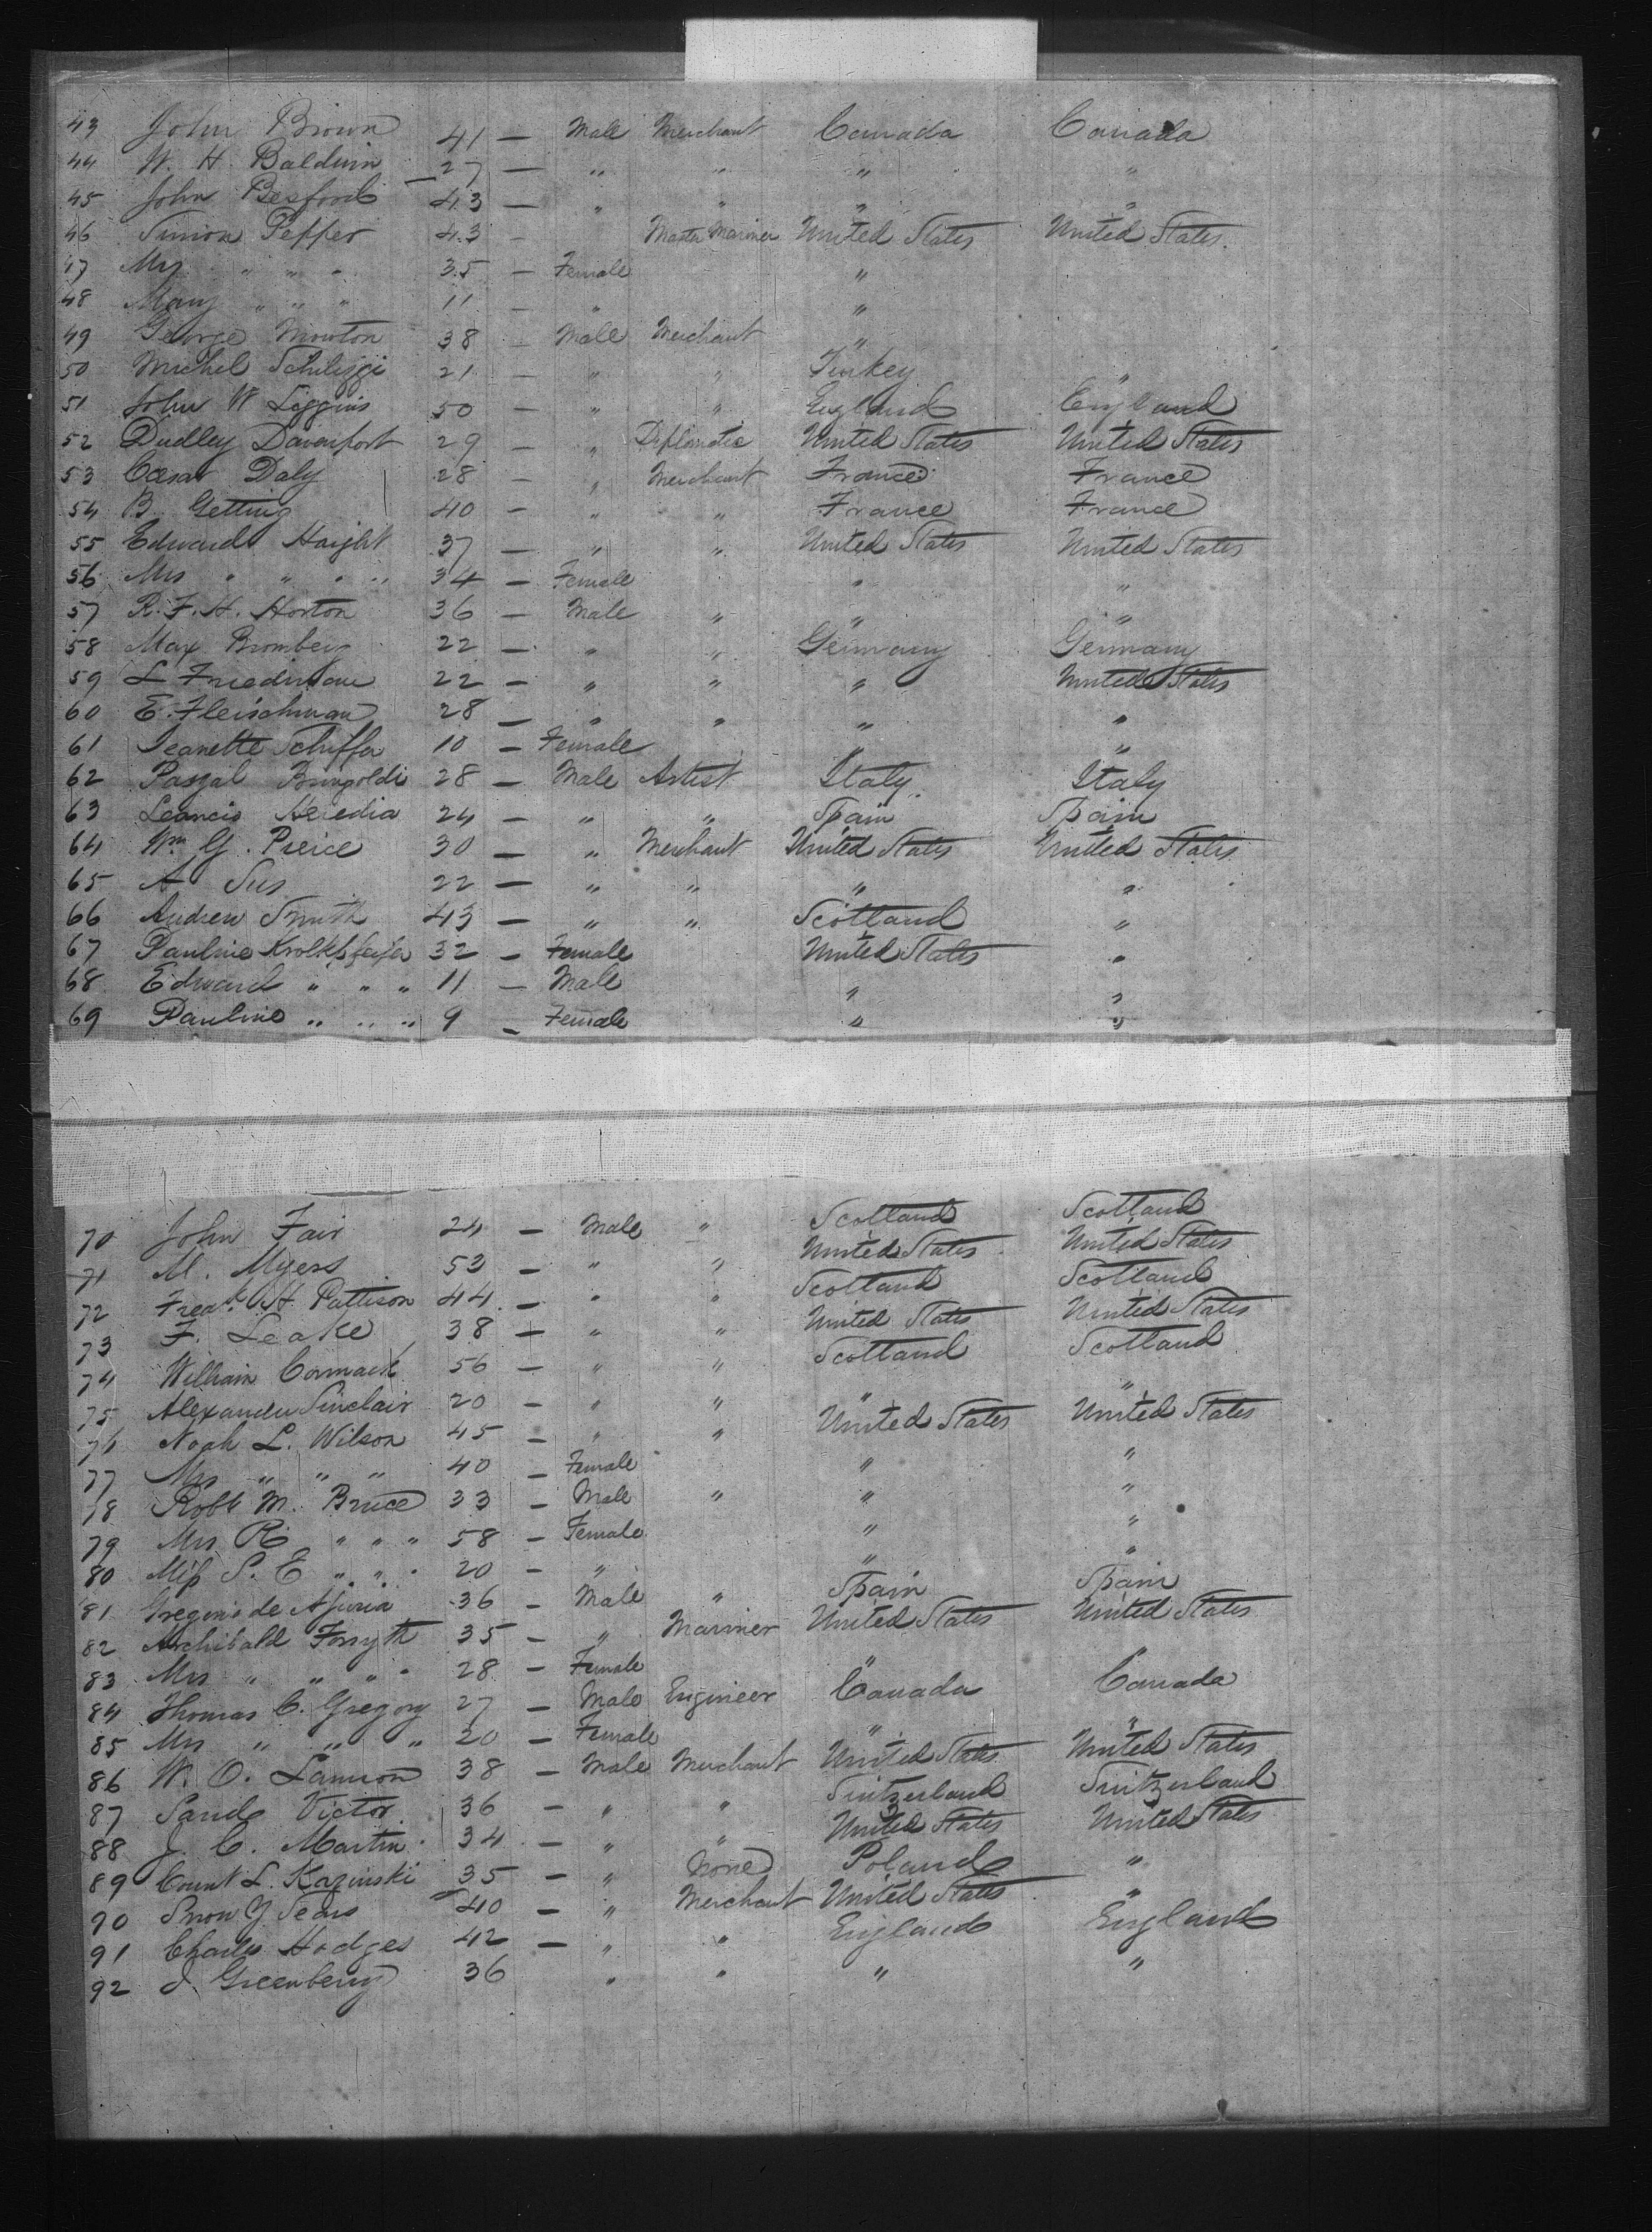 43 John Brown 41 — Male Merchant Canada Canada
44 W. H. Baldwin 27 — " " " "
45 John Besford 43 — " " " "
46 Simon Pepper 43 — Master Mariner United States United States.
47 Mrs " " " 35 — Female "
48 Mary " " " 11 — " "
49 George Mowton 38 — Male Merchant "
50 Michel Schilizzi 21 — " " Turkey "
51 John W Liggins 50 — " " England England
52 Dudley Davenport 29 — " United States United States
53 Cæsar Daly 28 — " Merchant France France
54 B. Getting 40 — " " France France
55 Edward Haight 37 — " " United States United States
56 Mrs " " " " 34 — Female " "
57 R. F. H. Horton 36 — Male " " "
58 Max Bromberg 22 — " " Germany Germany
59 L Friedman 22 — " " " United States
60 E. Fleischman 28 — " " " "
61 Jeanette Schiffer 10 — Female " "
62 Paszal 28 — Male Artist Italy Italy
63 Heredia 24 — " " Spain Spain
64 Wm G. Pierce 30 — " Merchant United States United States
65 A Sus 22 — " " " "
66 Andrew Smith 43 — " " Scotland "
67 Pauline 32 — Female United States "
68 Edward " " " 11 — Male " "
69 Pauline " " " 9 — Female " "
70 John Fair 24 — Male " Scotland Scotland
71 M. Myers 53 — " " United States United States
72 Fredk H. Pattison 44 — " " Scotland Scotland
73 F. Leake 38 — " " United States United States
74 William Cormack 56 — " " Scotland Scotland
75 Alexander Sinclair 20 — " " " "
76 Noah L. Wilson 45 — " " United States United States
77 Mrs " " " 40 — Female " "
78 Robt M. Bruce 33 — Male " " "
79 Mrs R " " " 58 — Female " "
80 Miss S. E " " " 20 — " " "
81 Gregorio de Ajuria 36 — Male " Spain Spain
82 Archibald Forsyth 35 — " Mariner United States United States
83 Mrs " " " " 28 — Female "
84 Thomas C. Gregory 27 — Male Engineer Canada Canada
85 Mrs " " " 20 — Female " "
86 W. O. Lamson 38 — Male Merchant United States United States
87 Sands Victor 36 — " " Switzerland Switzerland
88 J. C. Martin 34 — " " United States United States
89 Count L. Kazinski 35 — " None Poland "
90 Snow Y Sears 40 — " Merchant United States "
91 Charles Hodges 42 — " " England England
92 J. Greenberry 36 " " " "